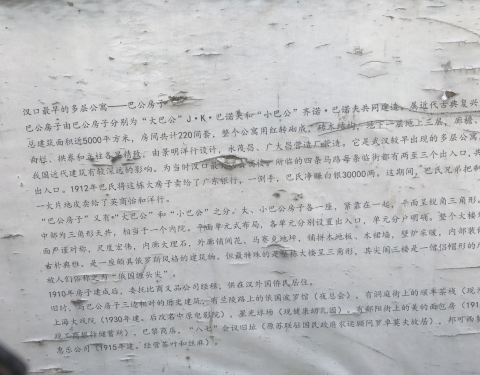 汉口最早的多层公寓——巴公房子
巴公房子由巴公房子分别为“大巴公”J·K·巴诺夫和“小巴公”齐诺·巴诺夫共同建造。属近代古典复兴
总建筑面积近5000平方米，房间共计220间套，整个公寓用红砖砌成，砖木结构，地下一层地上三层，廊檐、
由景明洋行设计，永茂昌、广大昌营造厂承造。它是武汉较早出现的多层公寓
我国近代建筑有较深远的影响。为当时汉口最 所临的四条马路每条临街都有两至三个出入口，共
出入口。1912年巴氏将这栋大房子卖给了广东银行，一倒手，巴氏净赚白银30000两，这期间，巴氏兄弟把
一大片地皮卖给了英商怡和洋行。
“巴公房子”又有“大巴公”和“小巴公”之分，大、小巴公房子各一座，紧靠在一起，平面呈锐角三角形，
中部为三角形天井，相当于一个内院，平面单元式布局，各单元分别设置出入口，单元分户明确。整个大楼
面严谨对称，尺度宏伟，内廊大理石，外廊铺间花，马赛克地坪，铺拼木地板，木裙墙，壁炉采暖，内部装
古朴典雅，是一座颇具俄罗斯风格的建筑物。但最特殊的是整栋大楼呈三角形，其尖阁三楼是一僧侣帽形的
故人们俗称之为“俄国馒头尖”。
1910年房子建成后，委托比商义品公司经租，供在汉外国侨民居住。
旧时，与巴公房子三边相对的历史建筑，有兰陵路上的俄国波罗馆（夜总会），有洞庭街上的顺丰茶栈（现
上海大戏院（1930年建，后改名中原电影院），星光球场（现健康幼儿园），有鄱阳街上的美的面包房（191
现工商银行储蓄所），巴黎商店，“八七”会议旧址（原苏联驻国民政府农运顾问罗卓莫夫故居），邦可西
惠乐公司（1915年建，经营茶叶和丝麻）